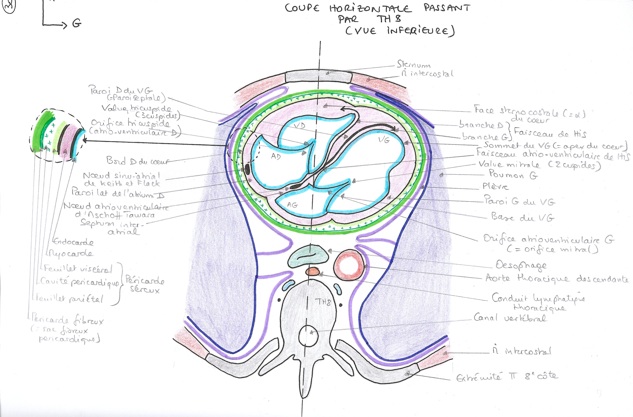 COUPE HORIZONTALE PASSANT
PAR TH8
(VUE INFERIEURE)
G
Sternum
M. intercostal
Paroi D du VG
(Paroi septale)
Valve tricuspide
(3 cuspides)
Orifice tricuspide
(atrioventriculaire D)
Bord D du coeur
Nœud sinu-atrial
de Keith et Flack
Paroi lat de l'atrium D
Nœud atrioventriculaire
d'Aschoff Tawara
Septum inter
atrial
Endocarde
Myocarde
Feuillet viscéral
Cavité péricardique
Feuillet pariétal
Péricarde
séreux
Péricarde fibreux
(= sac fibreux
péricardique)
VD
AD
VG
AG
TH8
Face sternocostale
du coeur
branche D
branche G
Faisceau de His
Sommet du VG (= apex du coeur)
Faisceau atrio-ventriculaire de His
Valve mitrale (2 cuspides)
Poumon G
Plèvre
Paroi G du VG
Base du VG
Orifice atrioventriculaire G
(= orifice mitral)
Oesophage
Aorte thoracique descendante
Conduit lymphatique
thoracique
Canal vertébral
M. intercostal
Extrémité π 8° côte